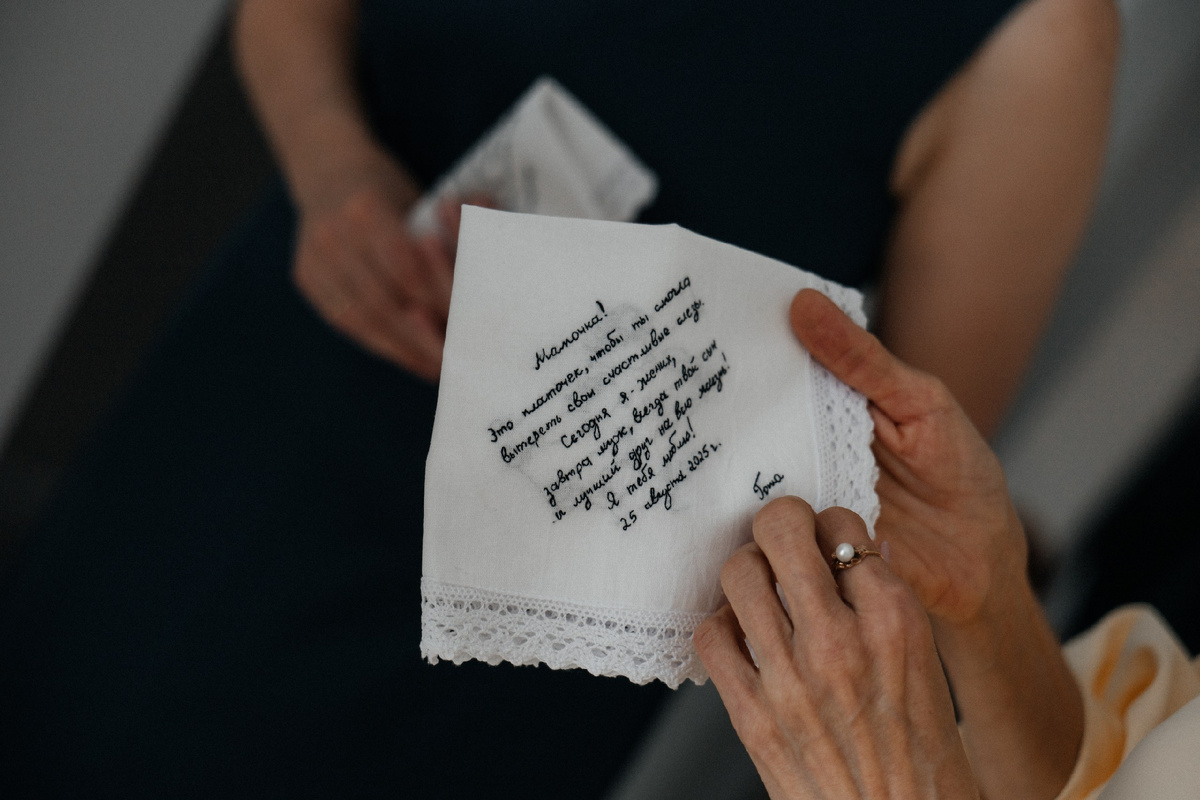 Мамочка!
Это платочек, чтобы ты смогла
вытереть свои счастливые слезы.
Сегодня я - жених,
завтра муж, всегда твой сын
и лучший друг на всю жизнь!
Я тебя люблю!
25 августа 2025 г.
Гоша